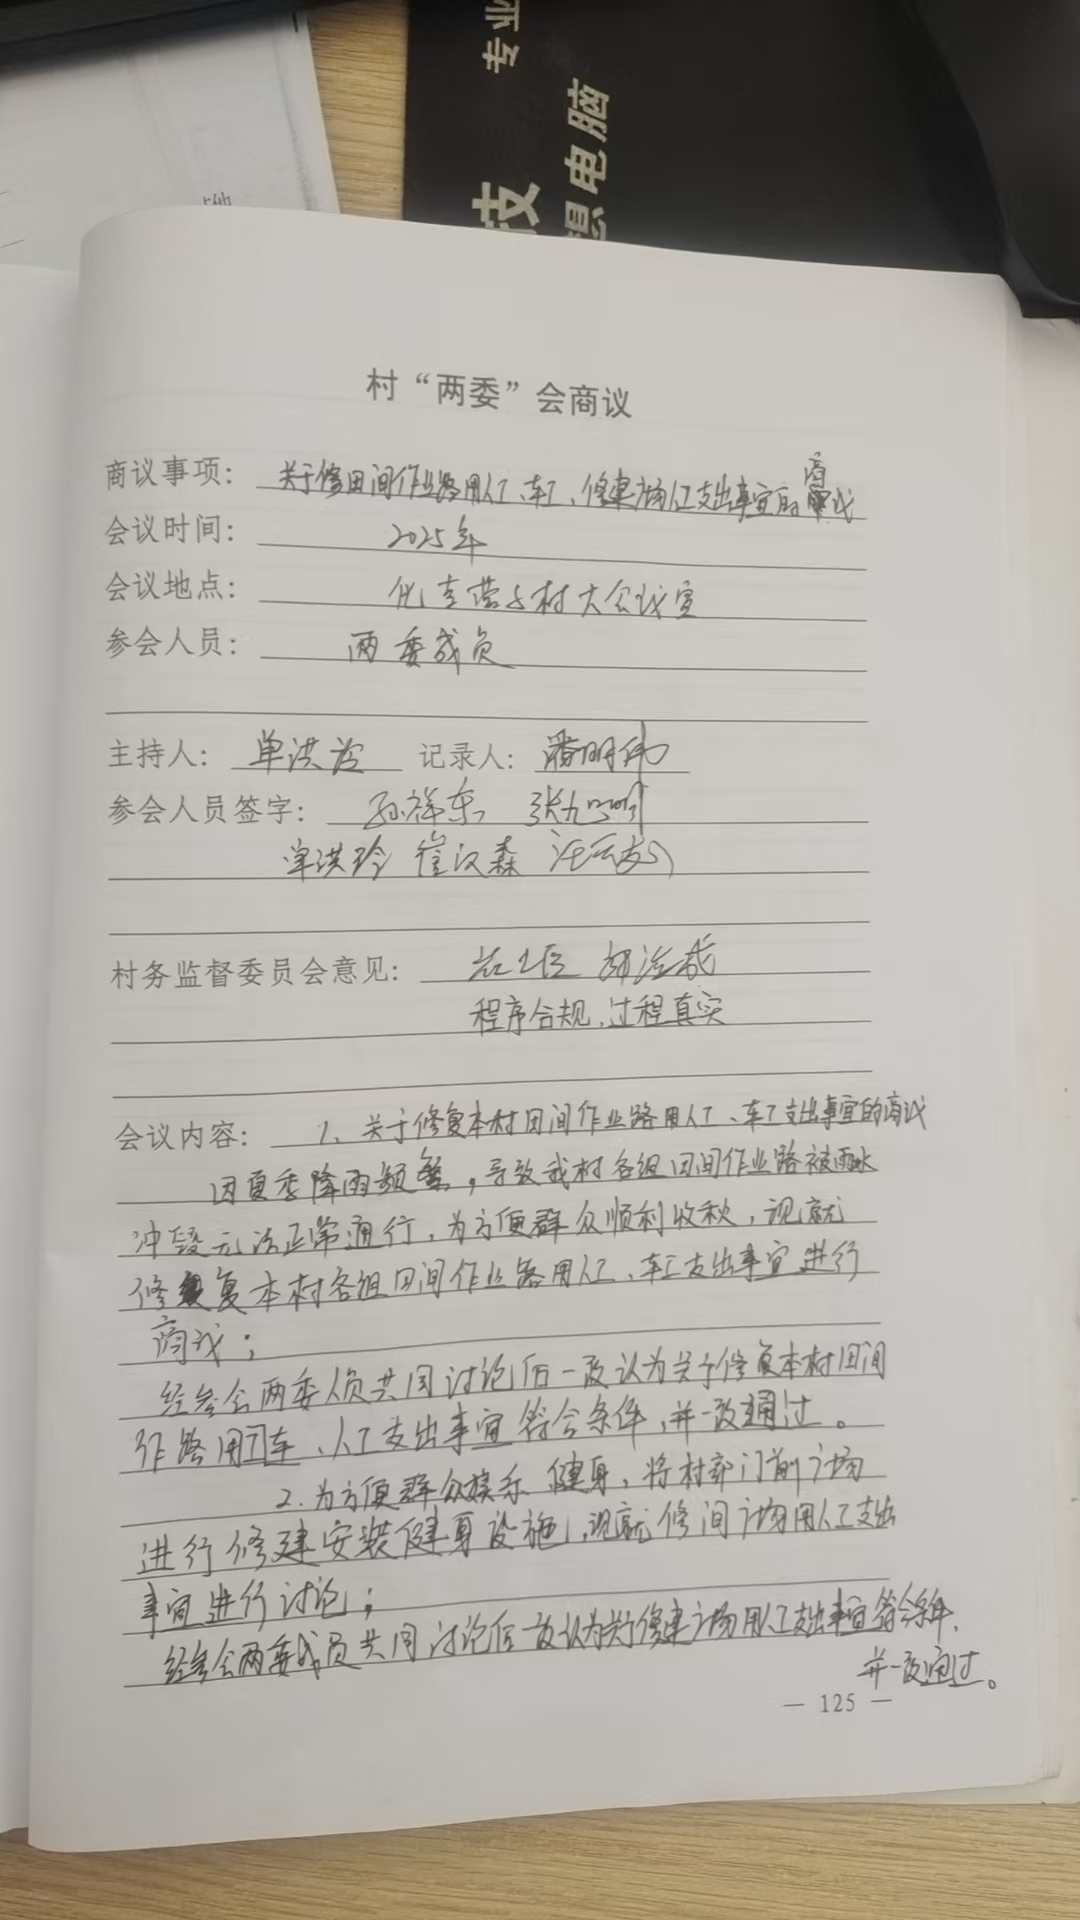 专业
技
想电脑
村“两委”会商议
商议事项：关于修田间作业路用人工、车工、修建广场人工支出事宜的商议
会议时间：2025年
会议地点：营子村大会议室
参会人员：两委成员
主持人：单洪 记录人：潘明伟
参会人员签字：孙祥东
单洪玲 崔汉森 汪
村务监督委员会意见：
程序合规、过程真实
会议内容：1、关于修复本村田间作业路用人工、车工支出事宜的商议
因夏季降雨频繁，导致我村各组田间作业路被雨水
冲毁无法正常通行，为方便群众顺利收秋，现就
修复本村各组田间作业路用人工、车工支出事宜进行
商议；
经参会两委人员共同讨论后一致认为关于修复本村田间
作路用车、人工支出事宜符合条件，并一致通过。
2.为方便群众娱乐、健身，将村部门前广场
进行修建安装健身设施，现就修间广场用人工支出
事宜进行讨论；
经参会两委成员共同讨论后一致认为关于修建广场用人工支出事宜符合条件，
并一致通过。
— 125 —